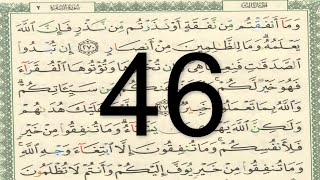 وَمَآ أَنفَقْتُم مِّن نَّفَقَةٍ أَوْ نَذَرْتُم مِّن نَّذْرٍ فَإِنَّ ٱللَّهَ
يَعْلَمُهُۥ وَمَا لِلظَّٰلِمِينَ مِنْ أَنصَارٍ ٢٧٠ إِن تُبْدُوا۟
ٱلصَّدَقَٰتِ فَنِعِمَّا هِىَ وَتُؤْتُوهَا ٱلْفُقَرَآءَ
فَهُوَ خَيْرٌ لَّكُمْ مِّن سَيِّـَٔاتِكُمْ
وَٱللَّهُ بِمَا تَعْمَلُونَ خَبِيرٌ عَلَيْكَ هُدَىٰهُمْ
وَلَٰكِنَّ ٱللَّهَ يَشَآءُ وَمَا تُنفِقُوا۟ مِنْ خَيْرٍ
فَلِأَنفُسِكُمْ وَمَا تُنفِقُونَ إِلَّا ٱبْتِغَآءَ وَجْهِ ٱللَّهِ
وَمَا تُنفِقُوا۟ مِنْ خَيْرٍ يُوَفَّ إِلَيْكُمْ وَأَنتُمْ لَا تُظْلَمُونَ
46